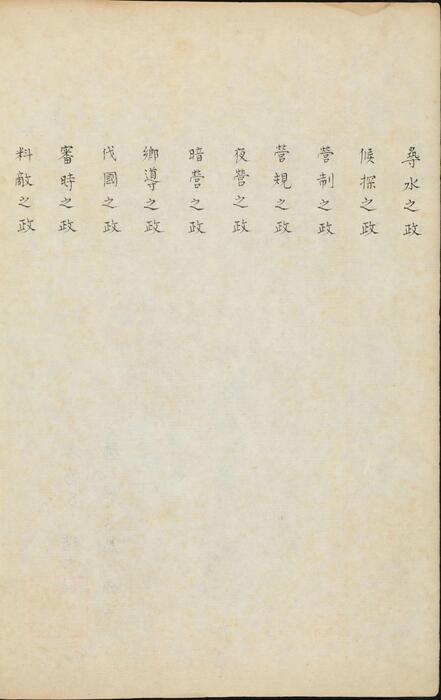 尋水之政
候探之政
營制之政
營規之政
夜營之政
暗營之政
鄉導之政
伐國之政
審時之政
料敵之政